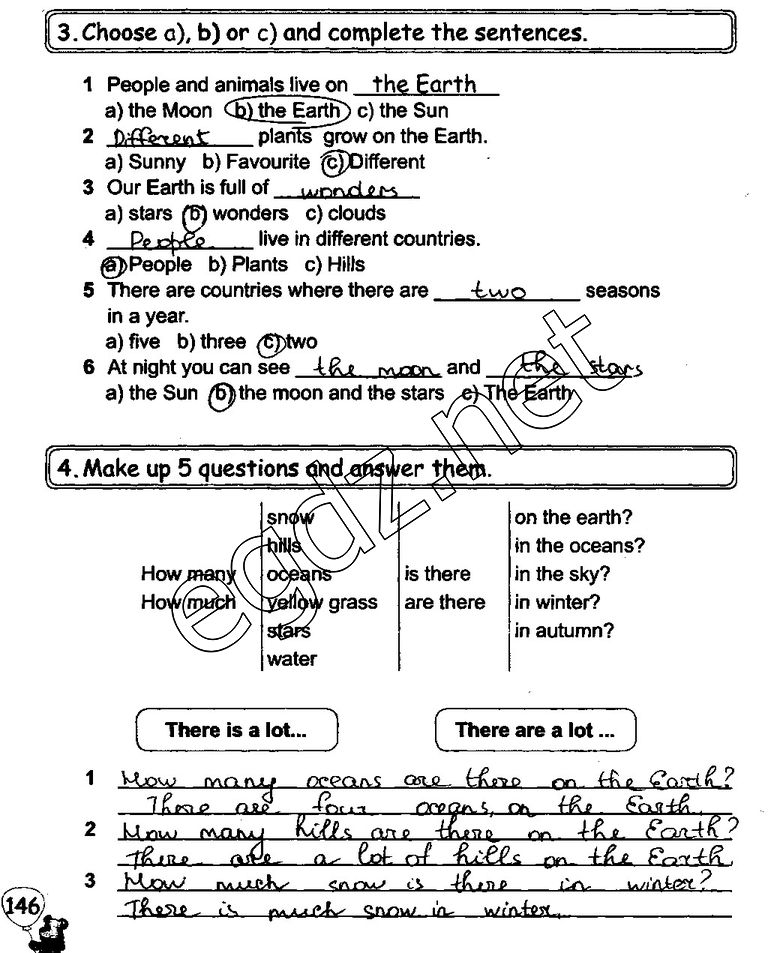 3. Choose a), b) or c) and complete the sentences.
1 People and animals live on the Earth
a) the Moon b) the Earth c) the Sun
2 Different plants grow on the Earth.
a) Sunny b) Favourite c) Different
3 Our Earth is full of wonders
a) stars b) wonders c) clouds
4 People live in different countries.
a) People b) Plants c) Hills
5 There are countries where there are two seasons
in a year.
a) five b) three c) two
6 At night you can see the moon and the stars
a) the Sun b) the moon and the stars c) The Earth
4. Make up 5 questions and answer them.
snow on the earth?
hills in the oceans?
How many oceans is there in the sky?
How much yellow grass are there in winter?
stars in autumn?
water
egdz.net
There is a lot... There are a lot ...
1 How many oceans are there on the Earth?
There are four oceans on the Earth.
2 How many hills are there on the Earth?
There are a lot of hills on the Earth
3 How much snow is there in winter?
There is much snow in winter.
146